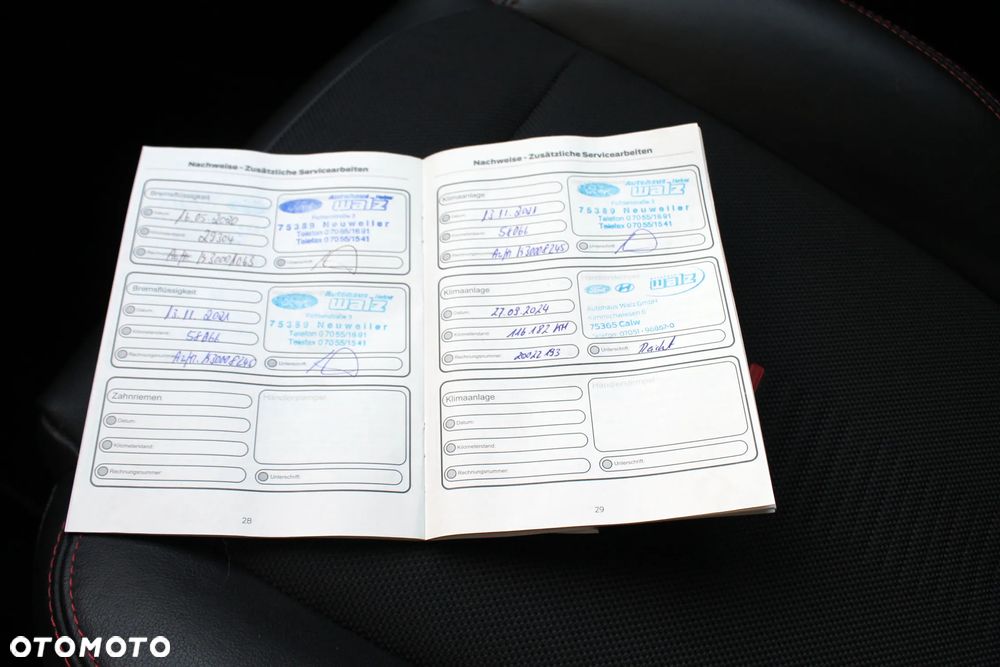 Nachweise - Zusätzliche Servicearbeiten
Bremsflüssigkeit
Datum:
16.05.2020
29304
Ford
Autohaus
walz
75389 Neuweiler
Telefon 0 70 55/16 91
Telefax 0 70 55/15 41
Unterschrift:
Bremsflüssigkeit
Datum:
13.11.2021
Kilometerstand:
58066
Rechnungsnummer:
Ford
Autohaus
walz
75389 Neuweiler
Telefon 0 70 55/16 91
Telefax 0 70 55/15 41
Unterschrift:
Zahnriemen
Datum:
Kilometerstand:
Rechnungsnummer:
Händlerstempel
Unterschrift:
28
Nachweise - Zusätzliche Servicearbeiten
Klimaanlage
Datum:
13.11.2021
Kilometerstand:
58066
Rechnungsnummer:
Autohaus
walz
75389 Neuweiler
Telefon 0 70 55/16 91
Telefax 0 70 55/15 41
Unterschrift:
Klimaanlage
Datum:
27.09.2024
Kilometerstand:
116.182 KM
Rechnungsnummer:
20022193
walz
Autohaus Walz GmbH
75365 Calw
Unterschrift:
Klimaanlage
Datum:
Kilometerstand:
Rechnungsnummer:
Händlerstempel
Unterschrift:
29
OTOMOTO